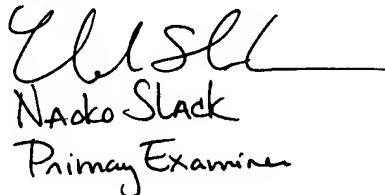 Naoko Slack
Primary Examiner